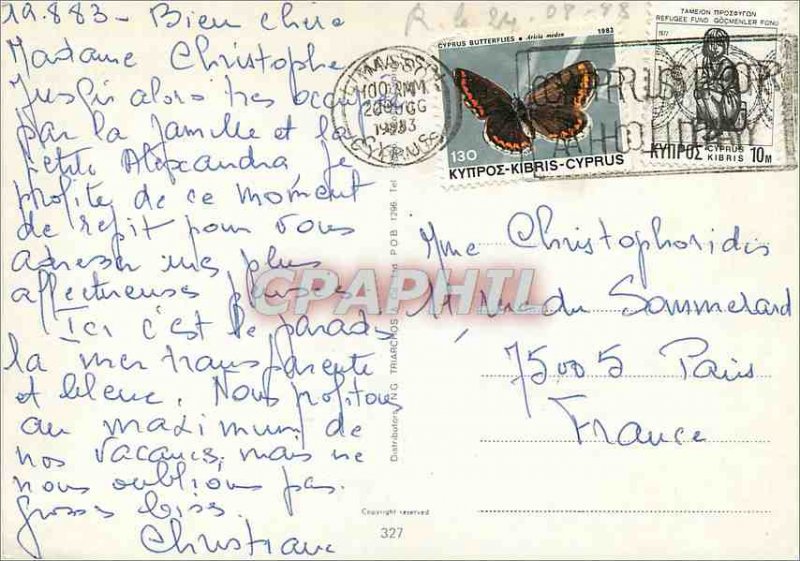 19.8 83 - Bien chère
Madame Christophe
Jusqu'alors très occupée
par la famille et la
petite Alexandra, je
profite de ce moment
de répit pour vous
adresser mes plus
affectueuses pensées.
Ici c'est le paradis
la mer transparente
et bleue. Nous profitons
au maximum de
nos vacances, mais ne
nous oublions pas.
Grosses bises.
Christiane
24.08.83
CYPRUS BUTTERFLIES - Aricia medon 1983
130
ΚΥΠΡΟΣ-KIBRIS-CYPRUS
ΤΑΜΕΙΟΝ ΠΡΟΣΦΥΓΩΝ
REFUGEE FUND GÖÇMENLER FONU
1977
ΚΥΠΡΟΣ CYPRUS KIBRIS 10M
20 AUG
1983
CYPRUS
CYPRUS FOR
A HOLIDAY
Mme Christophoridis
rue du Sommerard
75005 Paris
France
Distributors: N.G. TRIARCHOS Ltd P.O.B. 1296 Tel
Copyright reserved
327
CPAPHIL